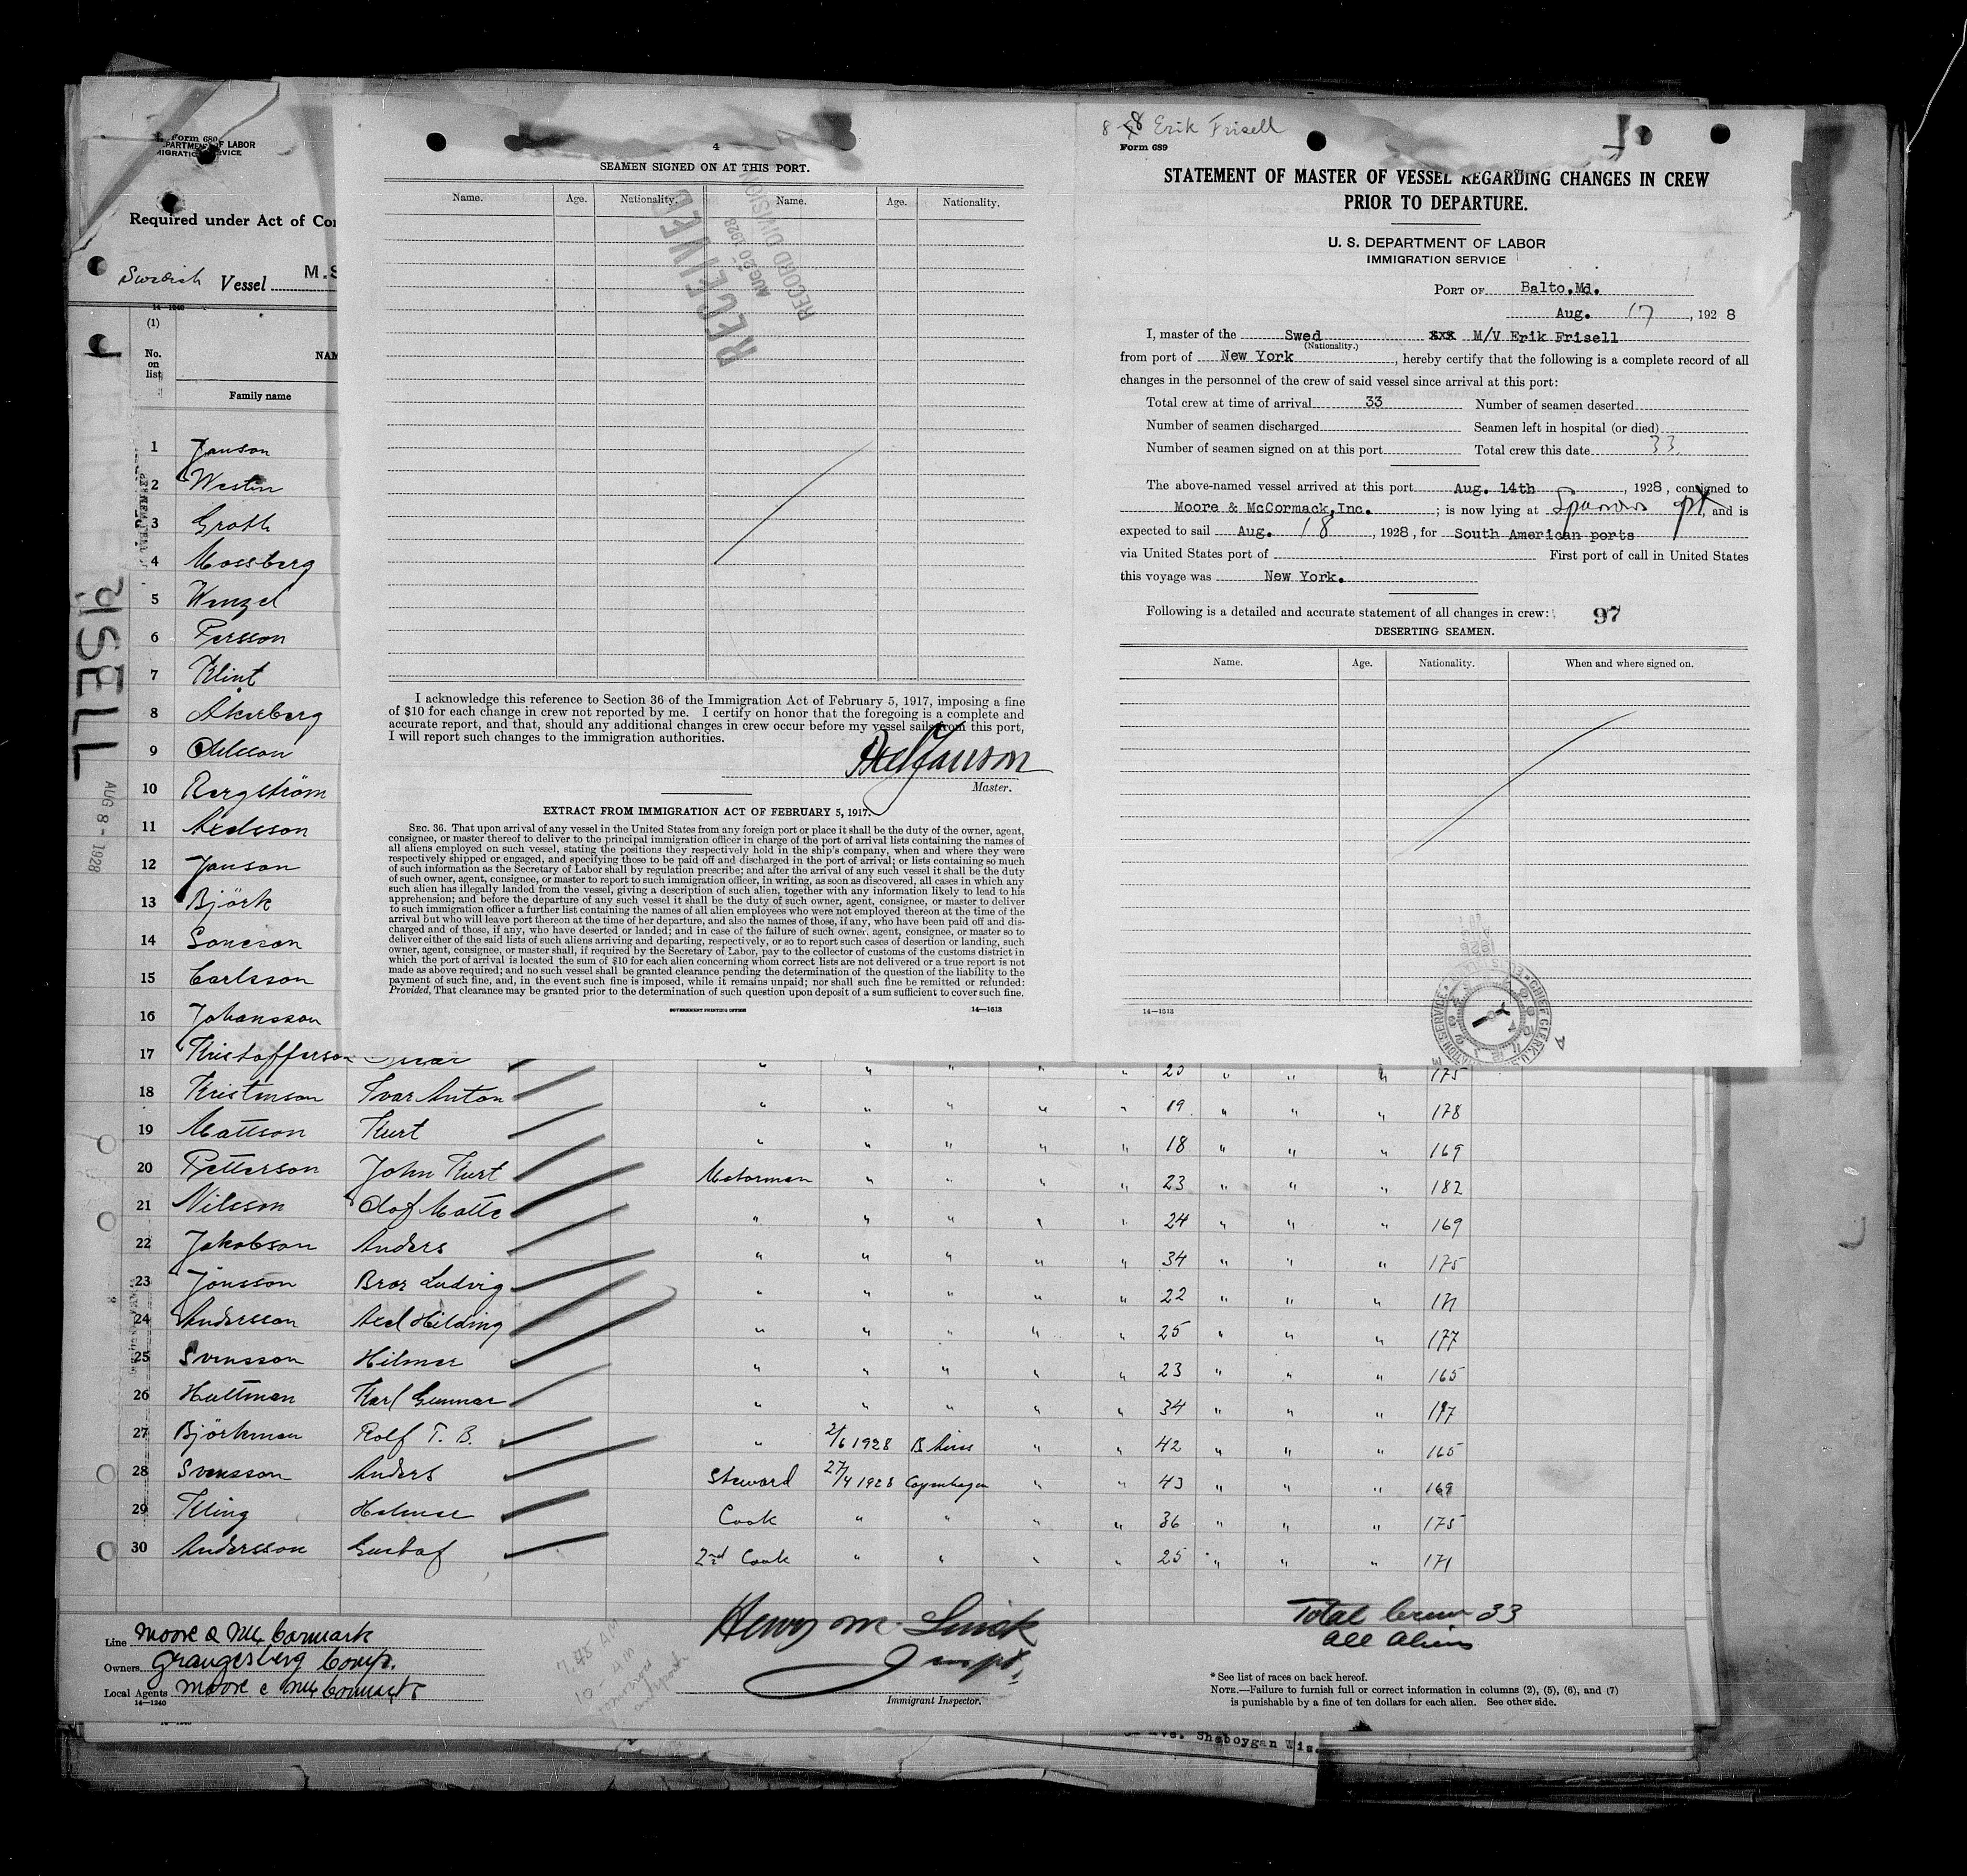 Form 680
DEPARTMENT OF LABOR
IMMIGRATION SERVICE
Required under Act of Con
Swedish Vessel M.S
14—1240
(1)
No.
on
list
NAM
Family name
1 Janson
2 Westin
3 Groth
4 Mossberg
5 Wenzel
6 Persson
7 Klint
8 Åkerberg
9 Olsson
10 Bergström
11 Axelsson
12 Janson
13 Björk
14
15 Carlsson
16 Johansson
17 Kristofferson 175
18 Kristenson Ivar Anton " " " " " 19 " " " 178
19 Mattson Kurt " " " " " 18 " " " 169
20 Petterson John Kurt Motorman " " " " 23 " " " 182
21 Nilsson Olof " " " " " 24 " " " 169
22 Jakobson Anders " " " " " 34 " " " 175
23 Jönsson Bror Ludvig " " " " " 22 " " " 171
24 Andersson Axel Hilding " " " " " 25 " " " 177
25 Svensson Hilmer " " " " " 23 " " " 165
26 Hultman Karl Gunnar " " " " " 34 " " "
27 Björkman Rolf T. B. " 2/6 1928 B Aires " " 42 " " " 165
28 Svensson Anders Steward 27/4 1928 Copenhagen " " 43 " " " 169
29 Kling Helmer Cook " " " " 36 " " " 175
30 Andersson Gustaf 2nd Cook " " " " 25 " " " 171
ISELL
AUG 8 - 1928
Line Moore & McCormack
Owners Grangesberg Comp.
Local Agents Moore & McCormack
14—1240
7.45 A.M
10 - A.M
Henry M.
Inspt.
Immigrant Inspector.
Total Crew 33
All Aliens
* See list of races on back hereof.
NOTE.—Failure to furnish full or correct information in columns (2), (5), (6), and (7)
is punishable by a fine of ten dollars for each alien. See other side.
Ave. Sheboygan Wis.
4
SEAMEN SIGNED ON AT THIS PORT.
Name. Age. Nationality. Name. Age. Nationality.
RECEIVED
AUG 20 1928
RECORD DIVISION
I acknowledge this reference to Section 36 of the Immigration Act of February 5, 1917, imposing a fine
of $10 for each change in crew not reported by me. I certify on honor that the foregoing is a complete and
accurate report, and that, should any additional changes in crew occur before my vessel sails from this port,
I will report such changes to the immigration authorities.
Axel Janson
Master.
EXTRACT FROM IMMIGRATION ACT OF FEBRUARY 5, 1917.
SEC. 36. That upon arrival of any vessel in the United States from any foreign port or place it shall be the duty of the owner, agent,
consignee, or master thereof to deliver to the principal immigration officer in charge of the port of arrival lists containing the names of
all aliens employed on such vessel, stating the positions they respectively hold in the ship's company, when and where they were
respectively shipped or engaged, and specifying those to be paid off and discharged in the port of arrival; or lists containing so much
of such information as the Secretary of Labor shall by regulation prescribe; and after the arrival of any such vessel it shall be the duty
of such owner, agent, consignee, or master to report to such immigration officer, in writing, as soon as discovered, all cases in which any
such alien has illegally landed from the vessel, giving a description of such alien, together with any information likely to lead to his
apprehension; and before the departure of any such vessel it shall be the duty of such owner, agent, consignee, or master to deliver
to such immigration officer a further list containing the names of all alien employees who were not employed thereon at the time of the
arrival but who will leave port thereon at the time of her departure, and also the names of those, if any, who have been paid off and dis-
charged and of those, if any, who have deserted or landed; and in case of the failure of such owner, agent, consignee, or master so to
deliver either of the said lists of such aliens arriving and departing, respectively, or so to report such cases of desertion or landing, such
owner, agent, consignee, or master shall, if required by the Secretary of Labor, pay to the collector of customs of the customs district in
which the port of arrival is located the sum of $10 for each alien concerning whom correct lists are not delivered or a true report is not
made as above required; and no such vessel shall be granted clearance pending the determination of the question of the liability to the
payment of such fine, and, in the event such fine is imposed, while it remains unpaid; nor shall such fine be remitted or refunded:
Provided, That clearance may be granted prior to the determination of such question upon deposit of a sum sufficient to cover such fine.
GOVERNMENT PRINTING OFFICE 14—1513
8 - 8 Erik Frisell
Form 689
STATEMENT OF MASTER OF VESSEL REGARDING CHANGES IN CREW
PRIOR TO DEPARTURE.
U. S. DEPARTMENT OF LABOR
IMMIGRATION SERVICE
PORT OF Balto.Md.
Aug. 17, 1928
I, master of the Swed xxx M/V Erik Frisell
(Nationality.)
from port of New York, hereby certify that the following is a complete record of all
changes in the personnel of the crew of said vessel since arrival at this port:
Total crew at time of arrival 33 Number of seamen deserted
Number of seamen discharged Seamen left in hospital (or died)
Number of seamen signed on at this port Total crew this date 33
The above-named vessel arrived at this port Aug. 14th, 1928, consigned to
Moore & McCormack,Inc.; is now lying at Sparrows pt, and is
expected to sail Aug. 18, 1928, for South American ports
via United States port of First port of call in United States
this voyage was New York.
Following is a detailed and accurate statement of all changes in crew: 97
DESERTING SEAMEN.
Name. Age. Nationality. When and where signed on.
14—1513
CHIEF CLERK U.S.